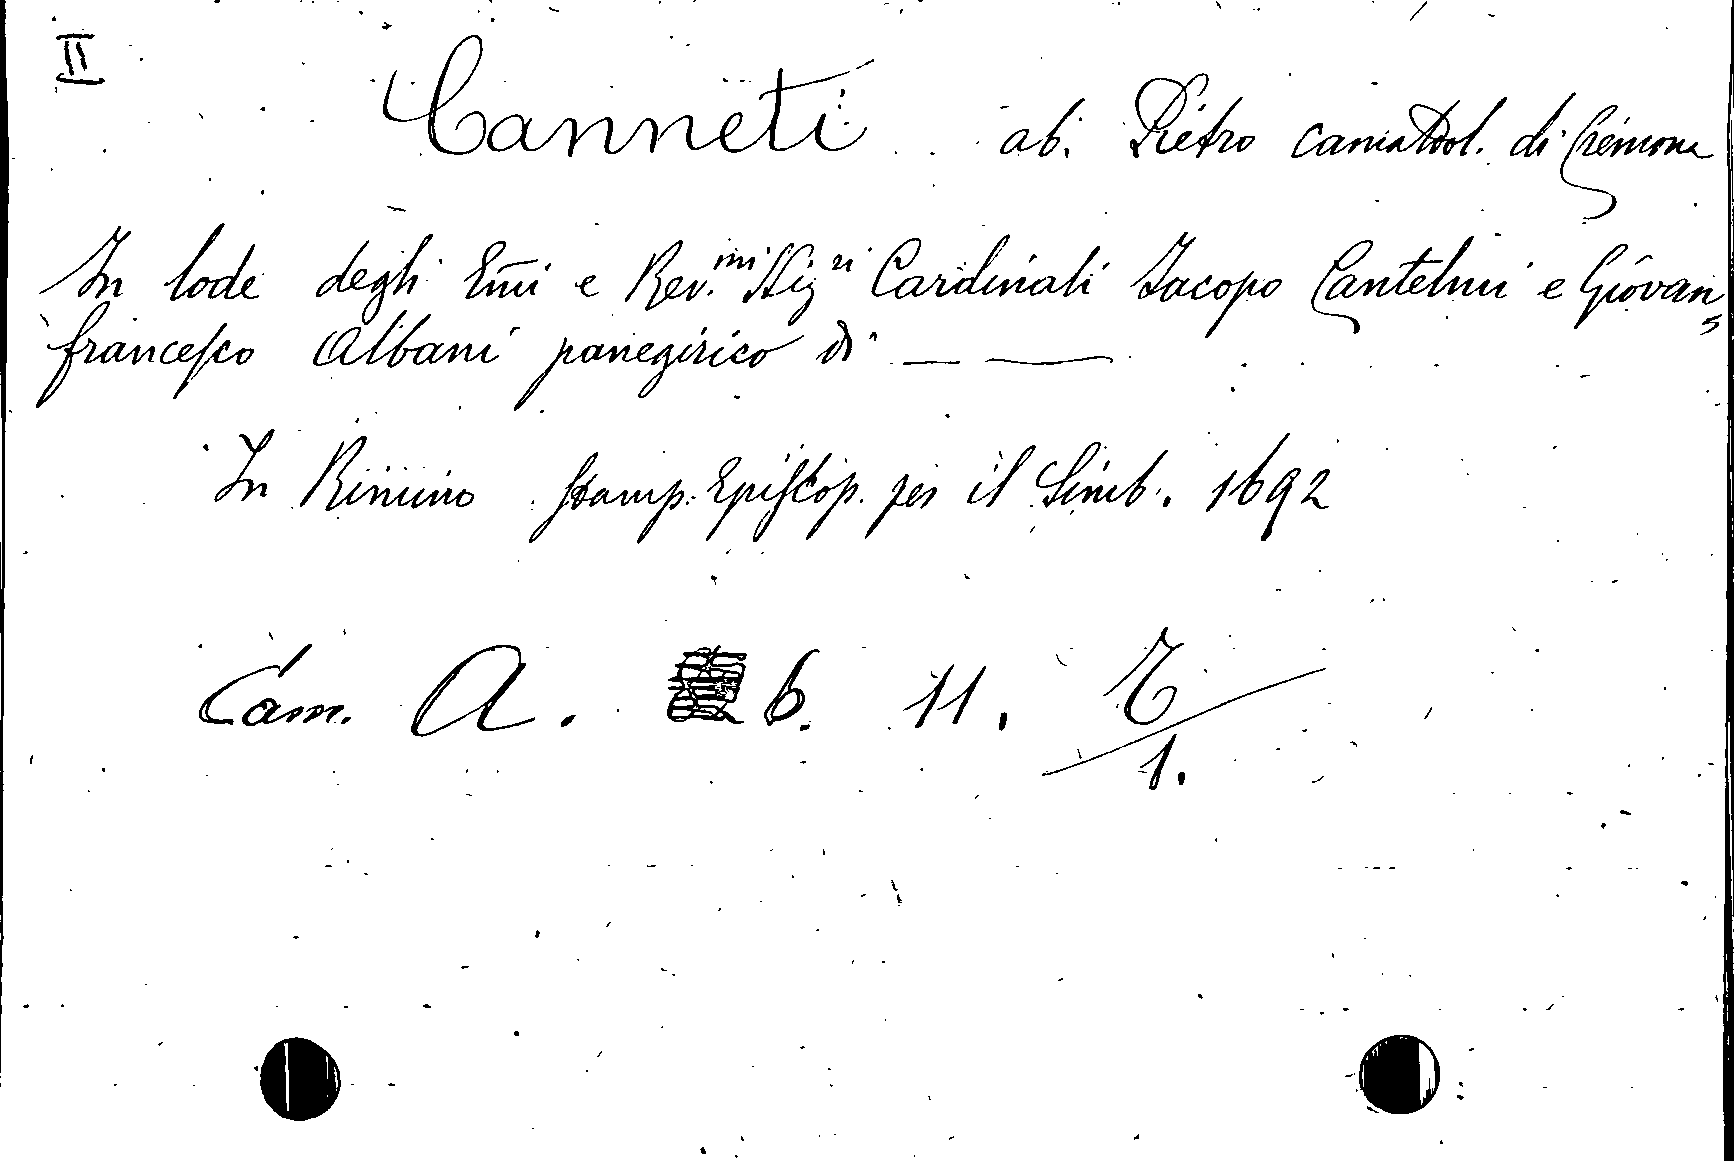 II
Canneti ab. Pietro camaldol. di Cremona
In lode degli Em̃i e Rev.mi Sigri Cardinali Jacopo Cantelmi e Giovan=
francesco Albani panegirico di — —
In Rimino Stamp. Episcop. per il Simb. 1692
Cam. A. 6. 11. T/1.